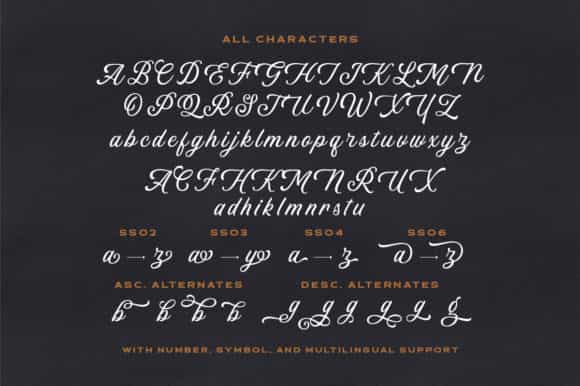 ALL CHARACTERS
ABCDEFGHIJKLMN
OPQRSTUVWXYZ
abcdefghijklmnopqrstuvwxyz
ACEFHKMNRUX
adhiklmnrstu
SS02 SS03 SS04 SS06
a → z a → y a → z a → z
ASC. ALTERNATES DESC. ALTERNATES
b b b b g g g g g
WITH NUMBER, SYMBOL, AND MULTILINGUAL SUPPORT